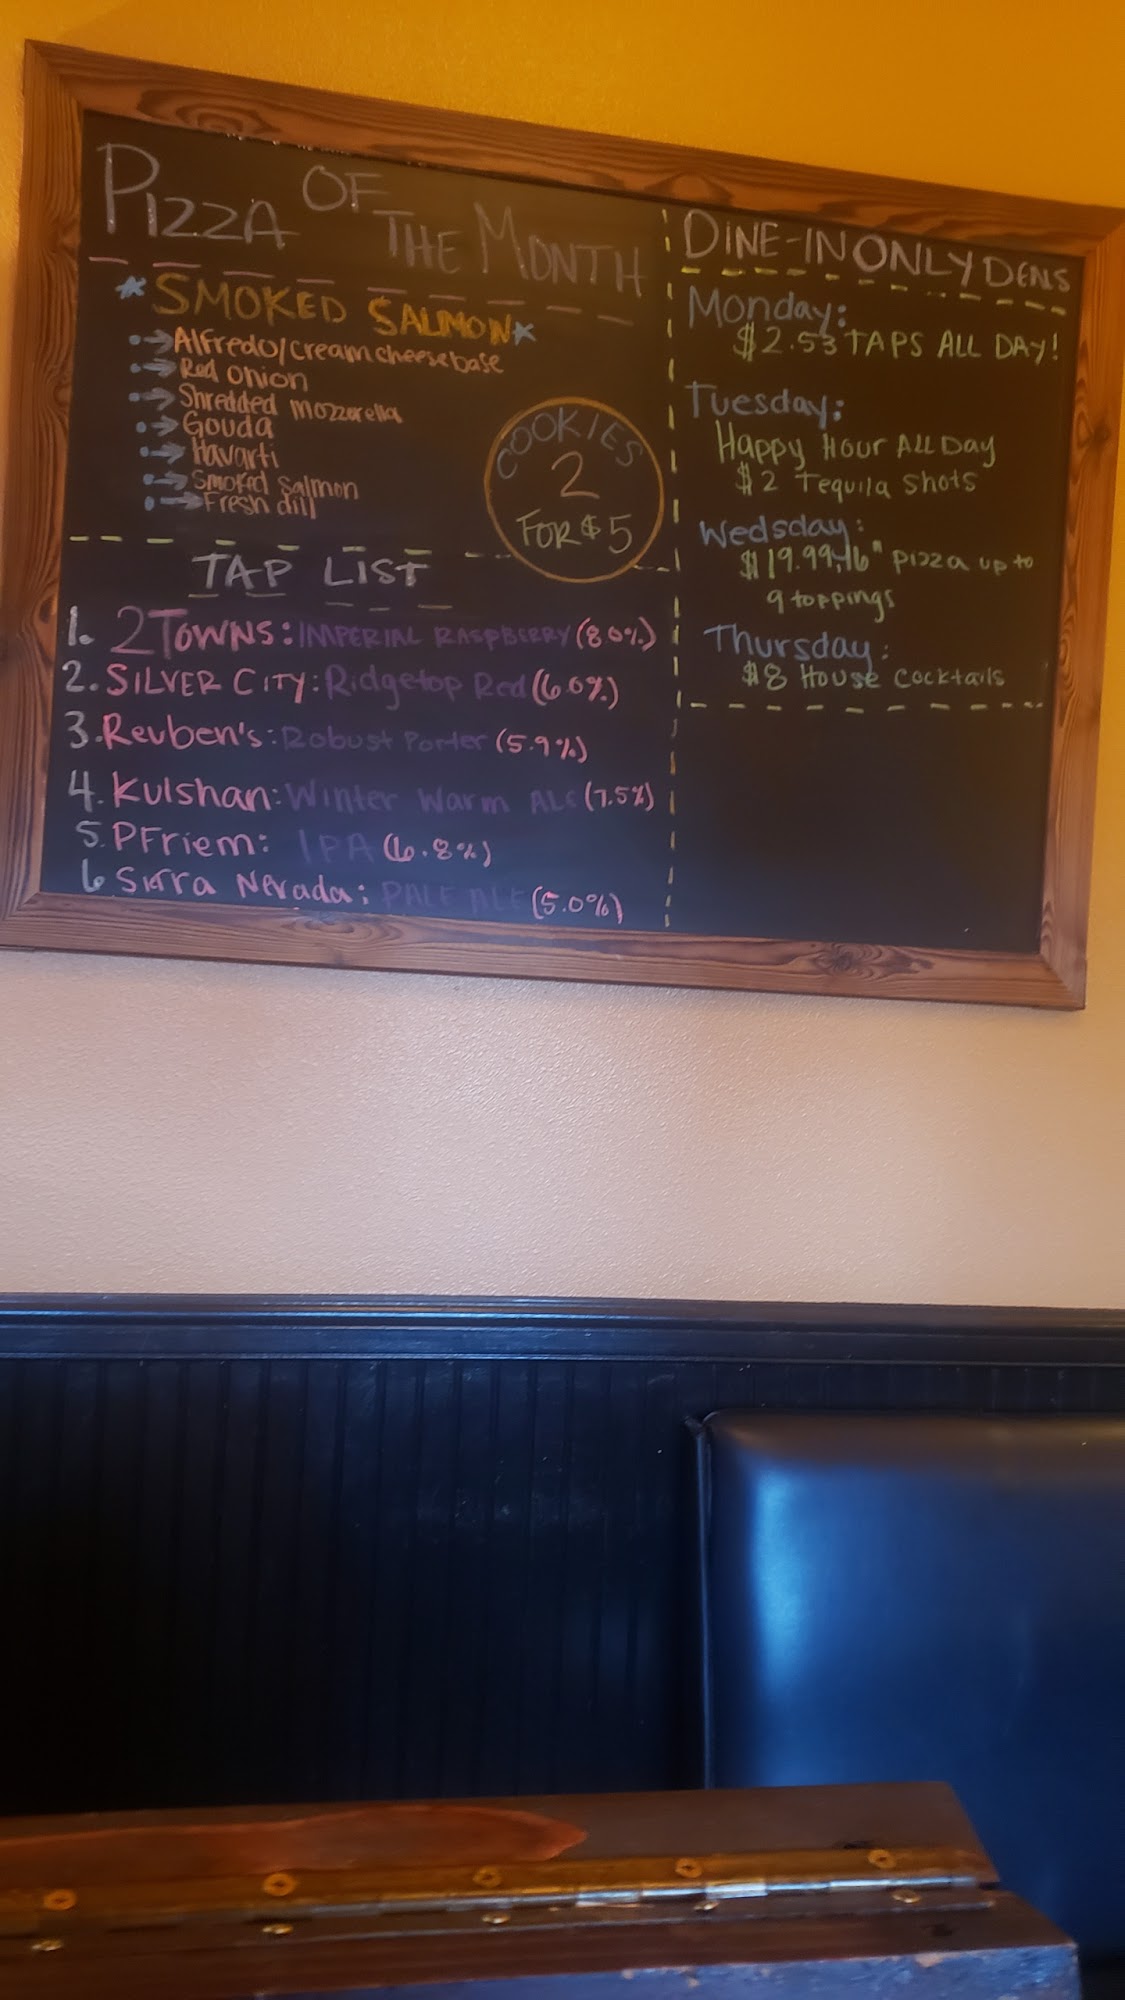 PIZZA OF THE MONTH
*SMOKED SALMON*
Alfredo/cream cheese base
Red onion
Shredded mozzarella
Gouda
Havarti
Smoked Salmon
Fresh dill
COOKIES
2
FOR $5
TAP LIST
1. 2 TOWNS: IMPERIAL RASPBERRY (8.0%)
2. SILVER CITY: Ridgetop Red (6.0%)
3. Reuben's: Robust Porter (5.9%)
4. Kulshan: Winter Warm ALE (7.5%)
5. PFriem: IPA (6.8%)
6 Sierra Nevada: PALE ALE (5.0%)
DINE-IN ONLY DENS
Monday:
$2.53 TAPS ALL DAY!
Tuesday:
Happy Hour ALL Day
$2 Tequila Shots
Wedsday:
$19.99, 16" pizza up to
9 toppings
Thursday:
$8 House Cocktails